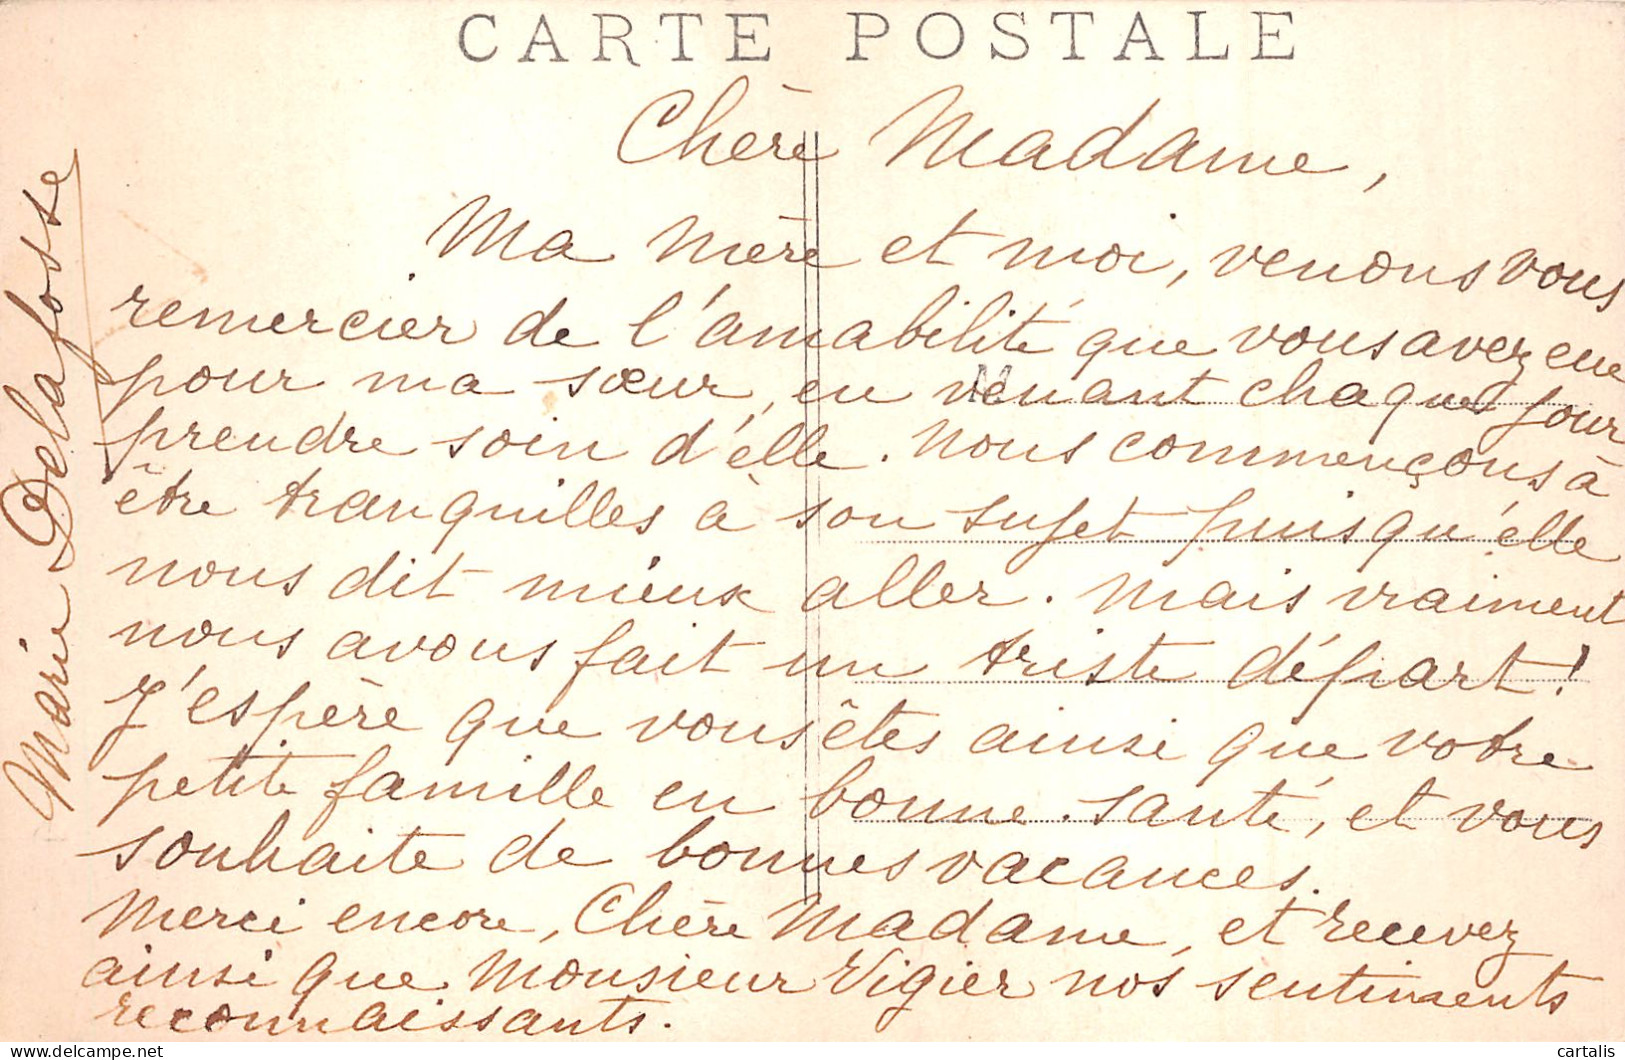 CARTE POSTALE
Chère Madame,
Ma mère et moi, venons vous
remercier de l'amabilité que vous avez eue
pour ma sœur, en venant chaque jour
prendre soin d'elle. Nous commençons à
être tranquilles à son sujet puisqu'elle
nous dit mieux aller. Mais vraiment
nous avons fait un triste départ!
J'espère que vous êtes ainsi que votre
petite famille en bonne santé, et vous
souhaite de bonnes vacances.
Merci encore, Chère Madame, et recevez
ainsi que Monsieur Vigier nos sentiments
reconnaissants.
Marie Delafosse
delcampe.net
cartalis